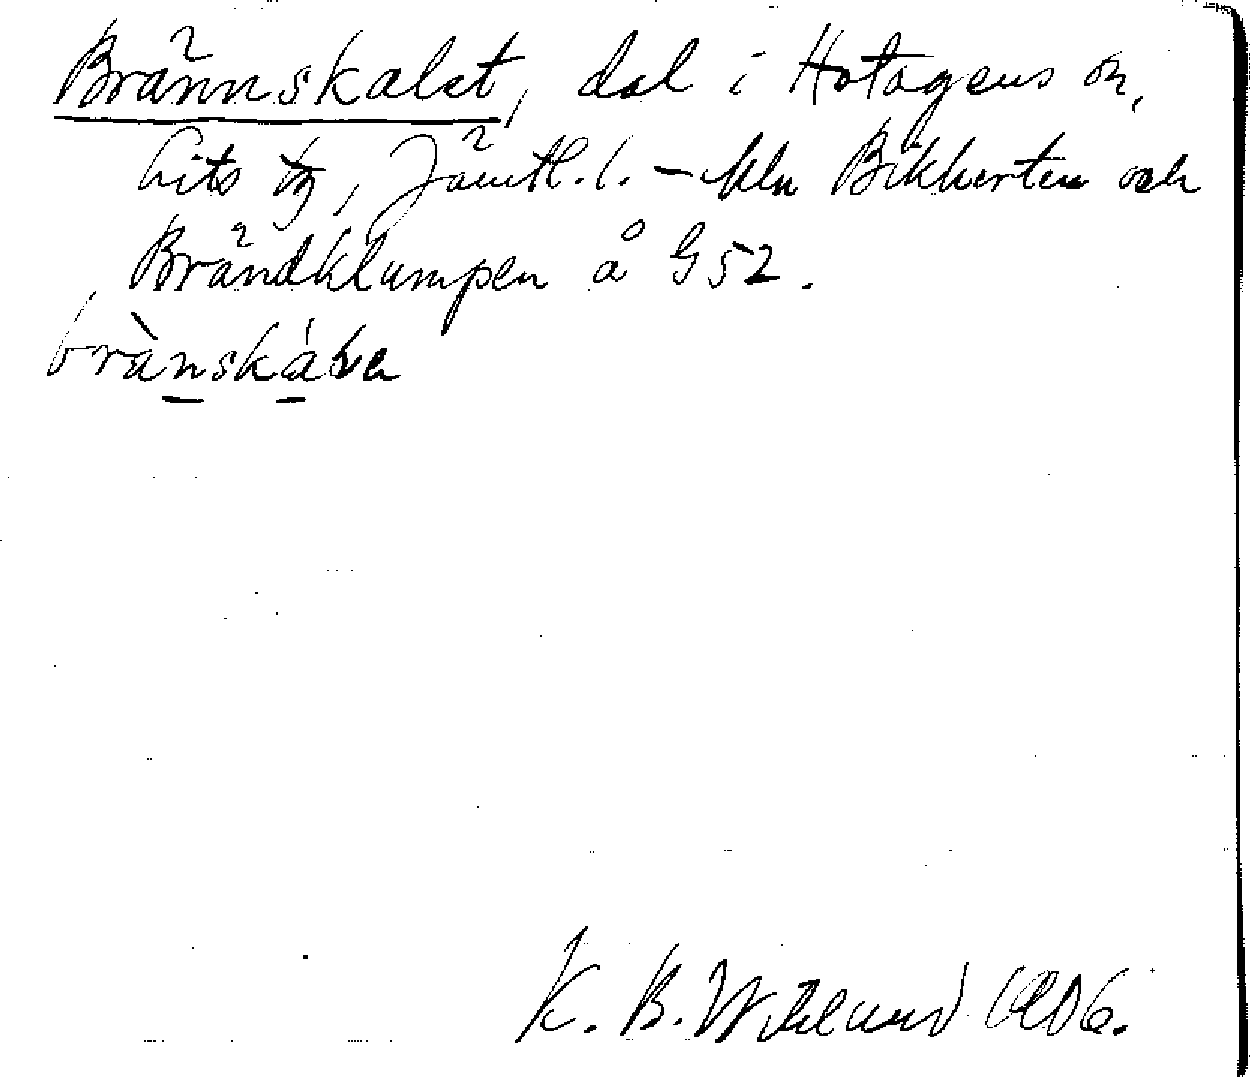 Brännskalet, dal i Hotagens sn,
Lits tg, Jämtl. l. – Mln Bikkerten och
Brändklumpen å G 52.
brànskáɫɐ
K. B. Wiklund 1906.